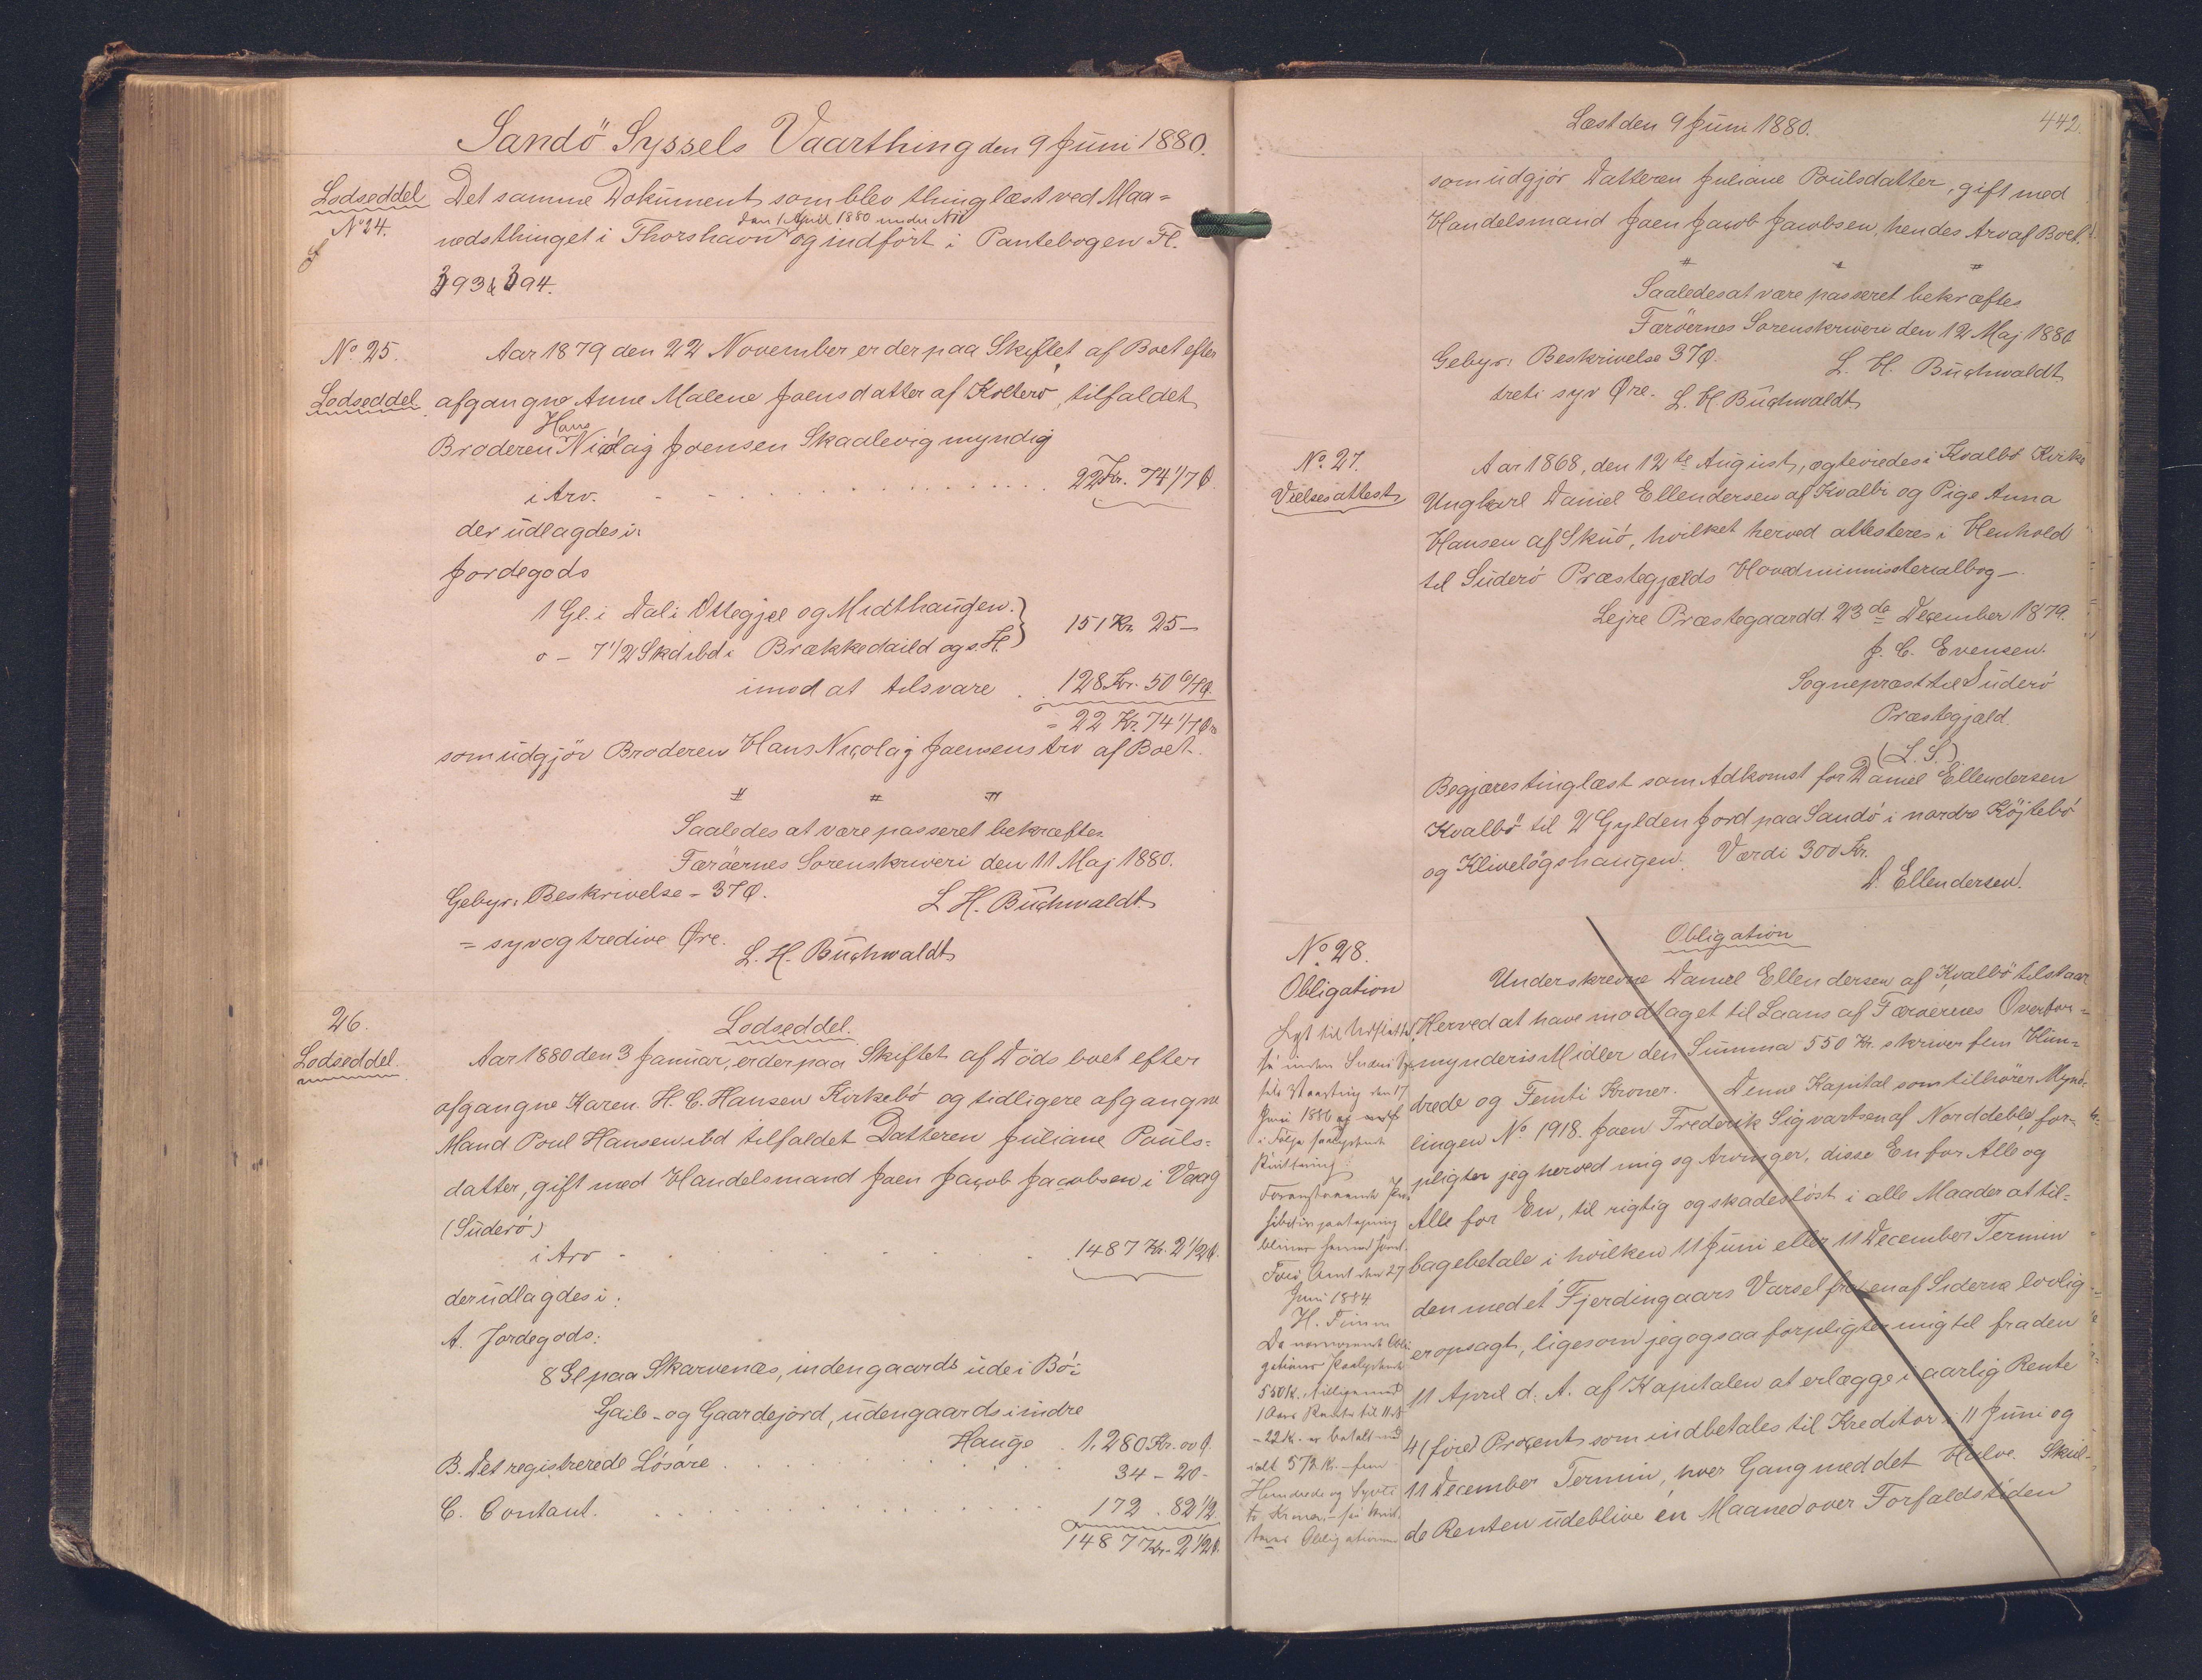 Sandö Syssels Vaarthing den 9 Juni 1880.
Lodseddel
N° 24.
Det samme Dokument som blev thinglæst ved Maa=
nedsthinget i Thorshavn den 1 April 1880 under N° og indført i Pantebogen Fl.
393 & 394.
N° 25.
Lodseddel.
Aar 1879 den 22 November er der paa Skiftet af Boet efter
afgangne Anne Malene Joensdatter af Kolterö, tilfaldet
Broderen Hans Nicolaj Joensen Skaalevig myndig
i Arv. 22 Kr. 74 1/7 Ø
der udlagdes i:
Jordegods
1 Gl. i Dal i Ottegjel og Midthaugen.
0 - 7 1/2 Skd ibd i Brækkedaild og s. H. } 151 Kr. 25 -
imod at tilsvare . 128 Kr. 50 6/7 Ø.
= 22 Kr. 74 1/7 Ør
som udgjör Broderen Hans Nicolaj Joensens Arv af Boet.
Saaledes at være passeret bekræftes.
Færöernes Sorenskriveri den 11 Maj 1880.
Gebyr: Beskrivelse - 37 Ø.
L. H. Buchwaldt
= syv og tredive Øre.
L. H. Buchwaldt
26.
Lodseddel.
Lodseddel.
Aar 1880 den 3 Januar, er der paa Skiftet af Döds boet efter
afgangne Karen H. C. Hansen Kirkebö og tidligere afgangne
Mand Poul Hansen ibd tilfaldet Datteren Juliane Pouls=
datter, gift med Handelsmand Joen Jacob Jacobsen i Vaag
(Suderö)
i Arv - 1487 Kr. 2 1/2 Ø.
der udlagdes i:
A. Jordegods:
8 Gl paa Skarvenæs, indengaards ude i Bö:
Gaile- og Gaardejord, udengaards i indre
Hauge . 1,280 Kr. 00 Ø.
B. Det registrerede Lösöre . 34 - 20 -
C. Contant. 172 . 82 1/2
1487 Kr. 2 1/2 Ø.
Læst den 9 Juni 1880.
442.
som udgjör Datteren Juliane Poulsdatter, gift med
Handelsmand Joen Jacob Jacobsen, hendes Arv af Boet.
Saaledes at være passeret bekræftes
Færöernes Sorenskriveri den 12 Maj 1880
Gebyr: Beskrivelse 37 Ø.
L. H. Buchwaldt
treti syv Øre. L. H. Buchwaldt
N° 27.
Vielsesattest
Aar 1868, den 12te August, ægteviedes i Kvalbö Kirke
Ungkarl Daniel Ellendersen af Kvalbö og Pige Anna
Hansen af Skuö, hvilket herved attesteres i Henhold
til Suderö Præstegjælds Hovedministerialbog -
Lejre Præstegaard d 23de December 1879.
J. C. Evensen.
Sognepræst til Suderö
Præstegjæld.
(L. S.)
Begjæres tinglæst som Adkomst for Daniel Ellendersen
Kvalbö til 2 Gylden Jord paa Sandö i nordre Köjtebö
og Klivelögshaugen. Værdi 300 Kr.
D. Ellendersen.
N° 28.
Obligation
Obligation
Underskrevne Daniel Ellendersen af Kvalbö tilstaar
Herved at have modtaget til Laans af Færöernes Overfor=
mynderis Midler den Summa 550 Kr. skriver fem Hun=
drede og Femti Kroner. Denne Kapital som tilhörer Mynd=
lingen N° 1918. Joen Frederik Sigvartsen af Norddeble, for=
pligter jeg herved mig og Arvinger, disse En for Alle og
Alle for En, til rigtig og skadeslöst i alle Maader at til=
bagebetale i hvilken 11 Juni eller 11 December Termin
den med ét Fjerdingaars Varsel fra en af Siderne lovlig
er opsagt, ligesom jeg ogsaa forpligter mig til fra den
11 April d. A. af Kapitalen at erlægge i aarlig Rente
4 (fire) Procent som indbetales til Kreditor i 11 Juni og
11 December Termin, hver Gang med det Halve. Skul-
de Renten udeblive én Maaned over Forfaldstiden
Juni 1886
Kvittering
Foranstaaende
Amt den 27
Juni 1884
H. Finsen
550 K.
- 22 K. er betalt med
ialt 572 K. - fem
Hundrede og Syvti
to Kroner
Obligationen